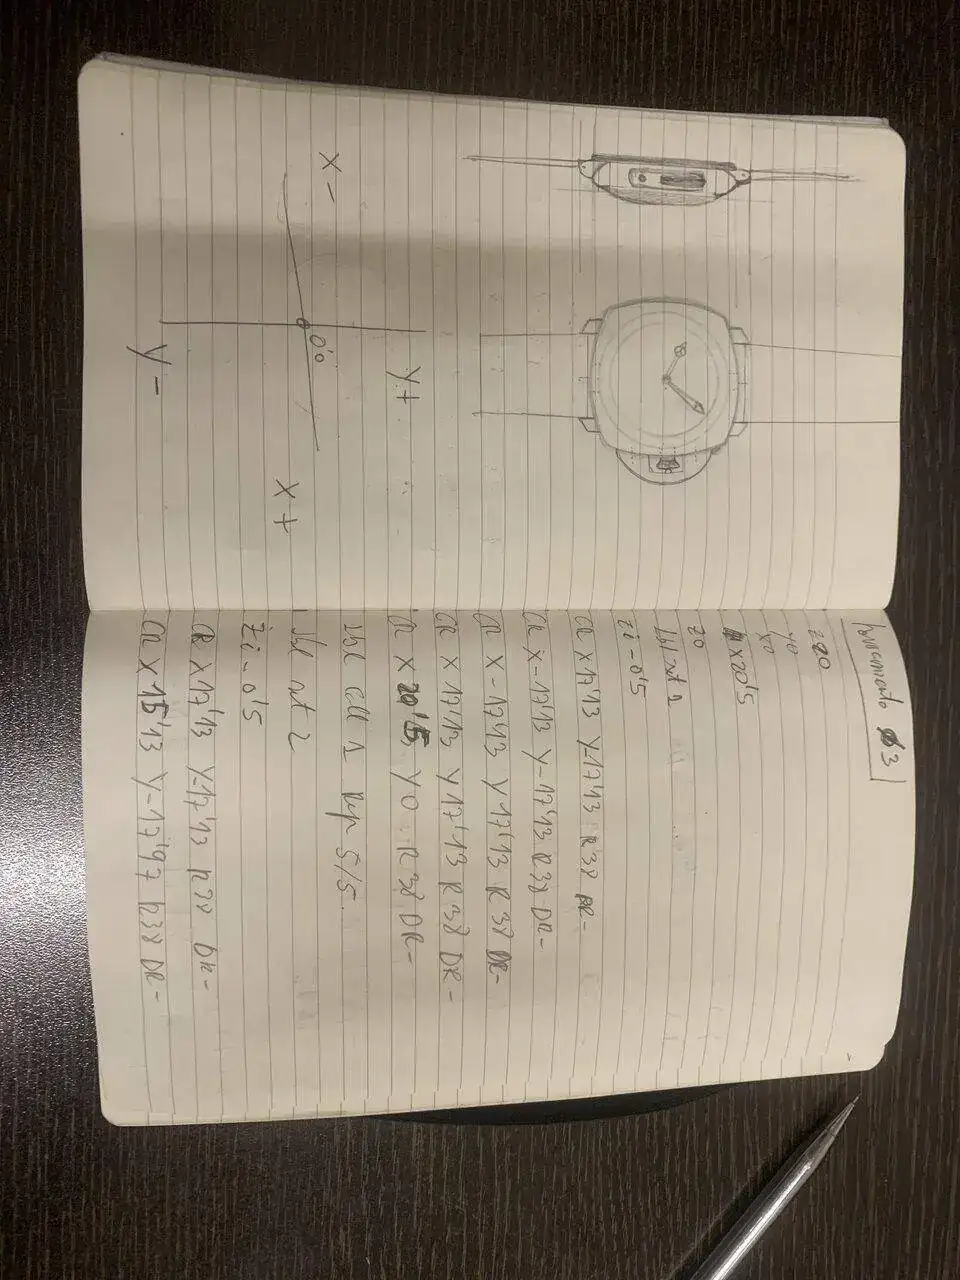 Y+
X-
0'0
X+
Y-
3
Z20
Y0
X0
X20'5
Z0
Lbl 2
Zi-0'5
CR X17'13 Y-17'13 R38 DR-
CR X-17'13 Y-17'13 R38 DR-
CR X-17'13 Y17'13 R38 DR-
CR X17'13 Y17'13 R38 DR-
CR X20'5 Y0 R38 DR-
lbl call 1 rep 5/5.
lbl 2
Zi-0'5
CR X17'13 Y-17'13 R38 DR-
CR X15'13 Y-17'97 R38 DR-